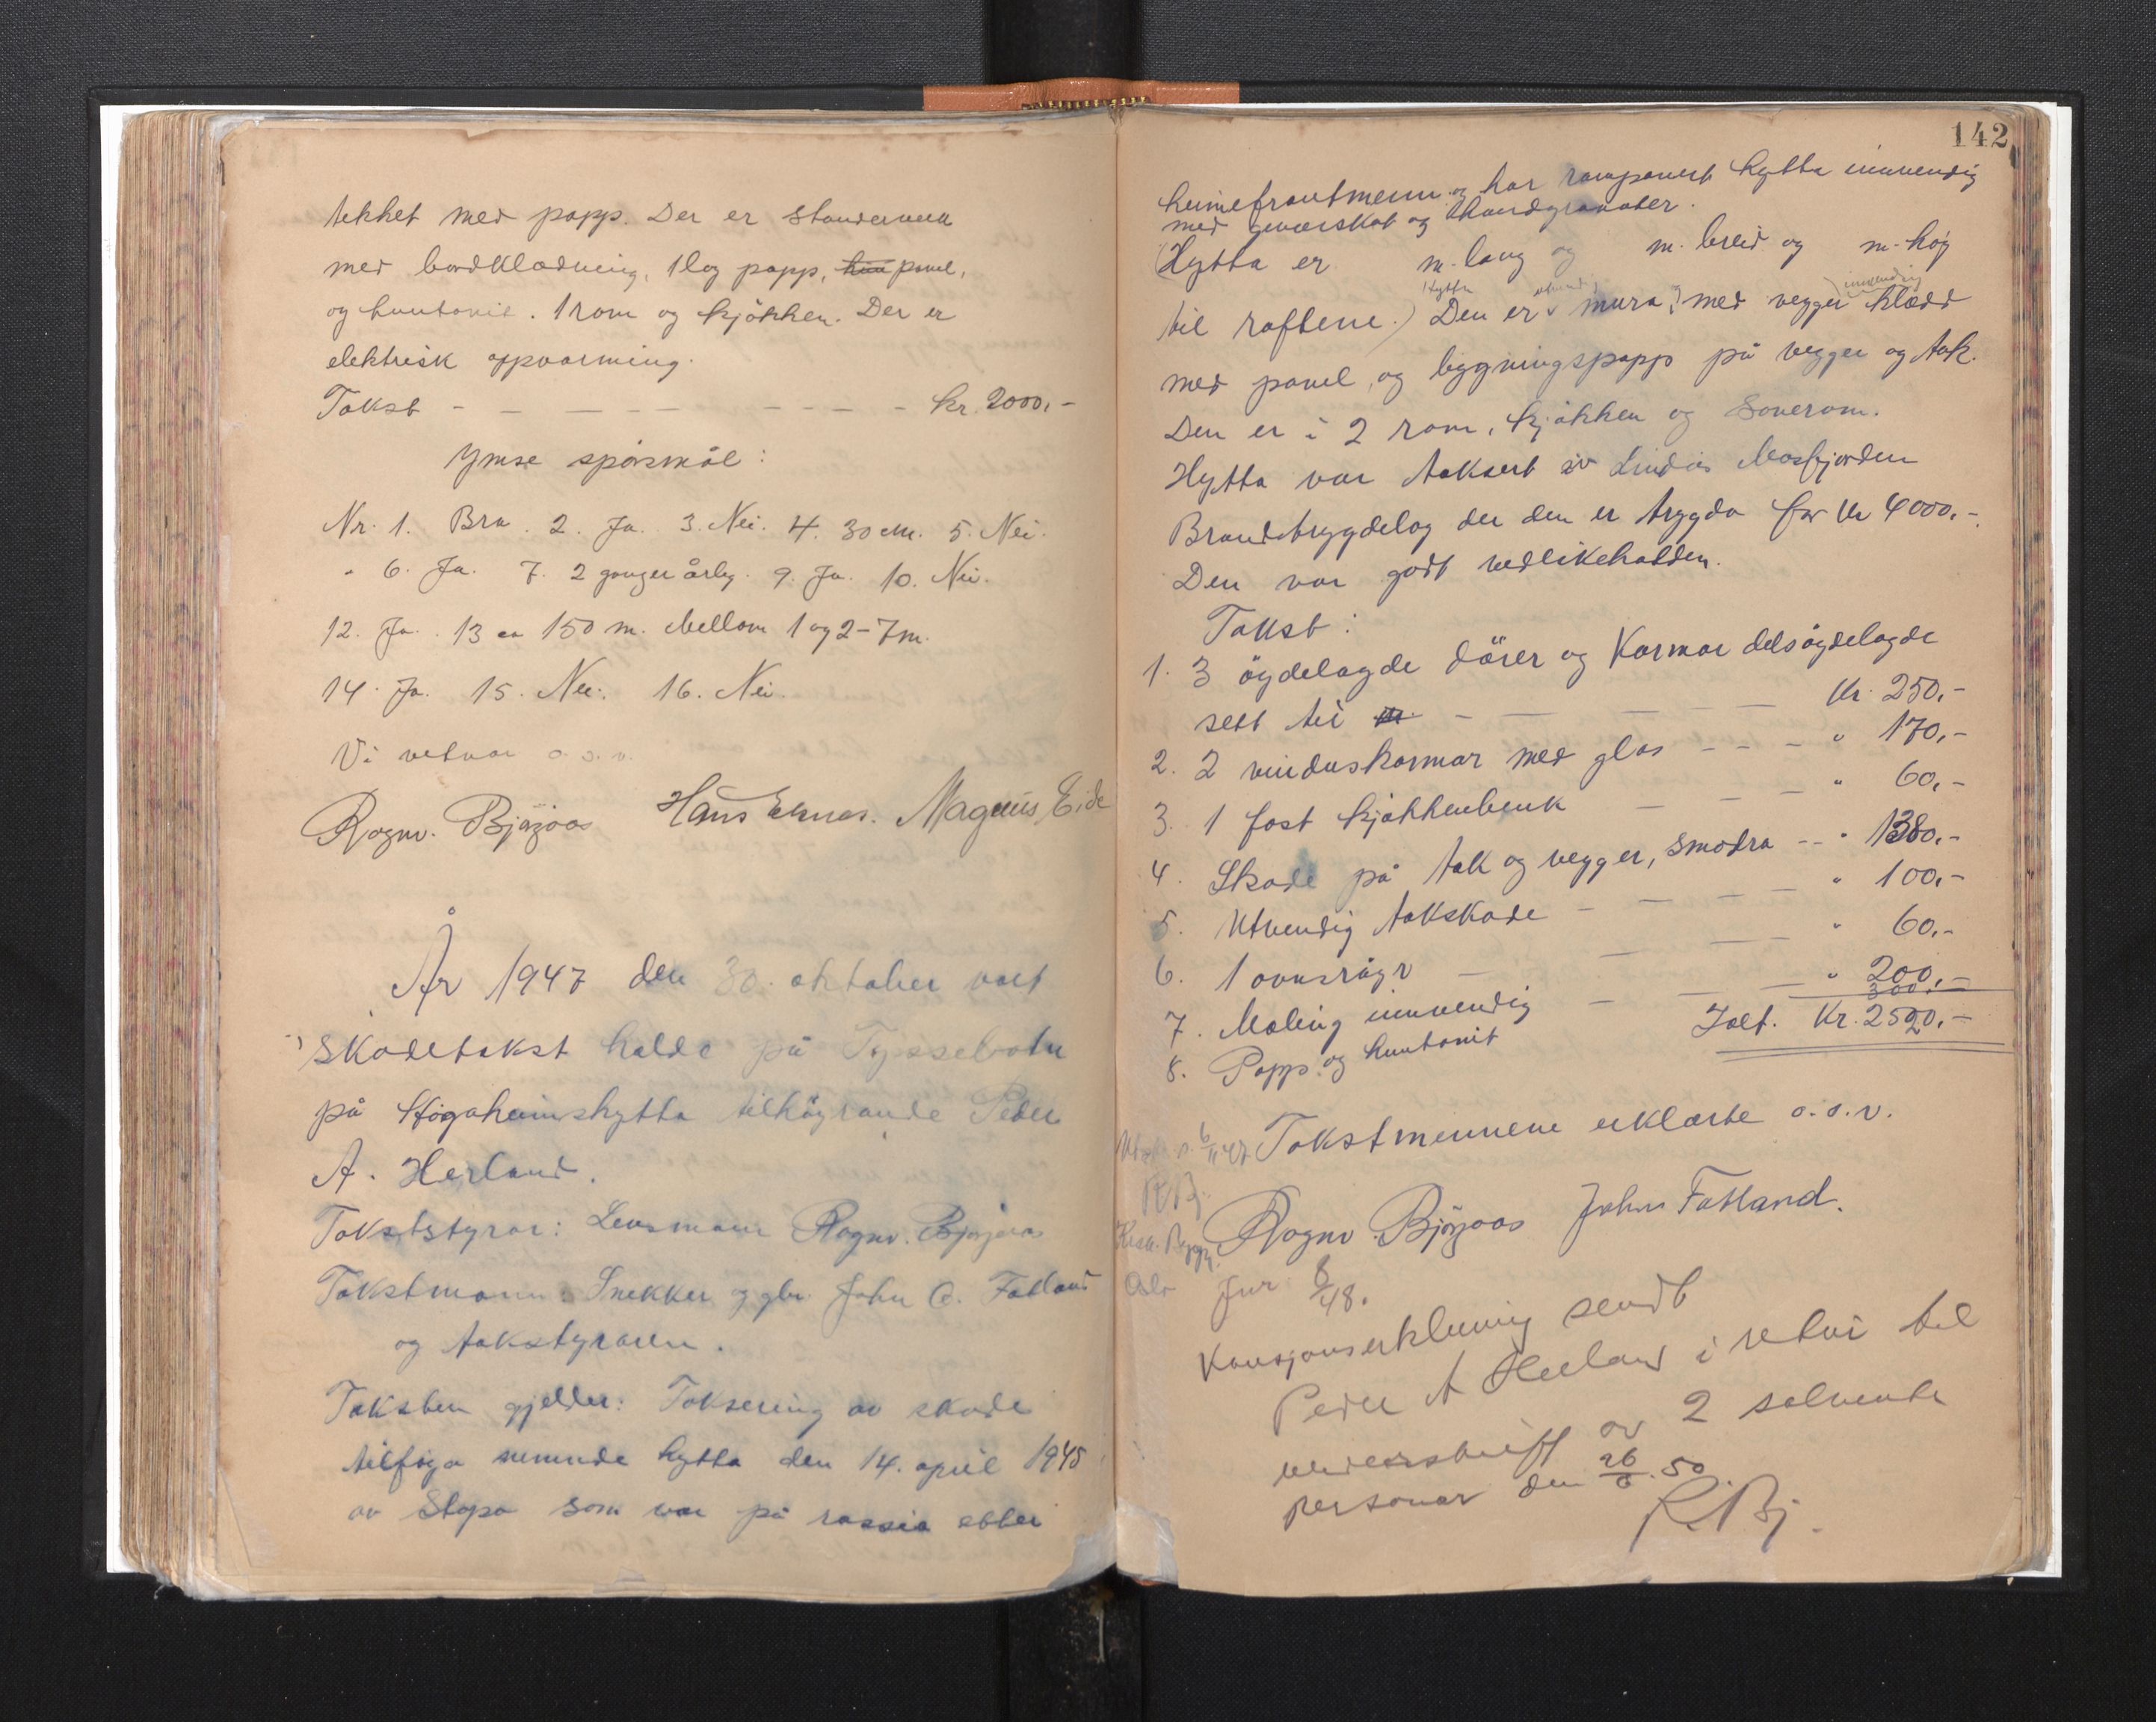 tekket med papp. Der er standerverk
med bordklædning, 1 lag papp, panel,
og huntonit. 1 rom og kjökken. Der er
elektrisk oppvarming.
Takst - - - - - - - - - kr. 2000,-
Ymse spörsmål:
Nr. 1. Bra. 2. Ja. 3. Nei. 4. 30 cm. 5. Nei.
" 6. Ja. 7. 2 gonger årleg. 9. Ja. 10. Nei.
12. Ja. 13 ca 150 m. Mellom 1 og 2 - 7 m.
14. Ja. 15. Nei. 16. Nei.
Vi vetvar o.s.v.
Ragnv. Bjözaas Hans Eknes. Magnus Eide
År 1947 den 30. oktober vart
skadetakst halde på Tyssebotn
på Högaheimshytta tilhöyrande Peder
A. Herland.
Takststyrar: Lensmann Ragnv. Bjözaas
Takstmann: Snekker og gbr. John O. Fatland
og takstyraren.
Taksten gjelder: Taksering av skade
tilföga nemnde hytta den 14. april 1945
av Stapo som var på rassia etter
142
heimefrontmenn og har ramponert hytta innvendig
med geværskot og handgranater.
(Hytta er m. lang og m. breid og m. hög
til raftene.) Den er mura, med vegger innvendig klædd
med panel, og bygningspapp på vegger og tak.
Den er i 2 rom, kjökken og soverom.
Hytta var taksert av Lindås Masfjorden
Brandtrygdelag der den er trygda for kr 4000,-.
Den var godt vedlikehalden.
Takst:
1. 3 öydelagde dörer og karmar dels öydelagde
sett til - - - - - Kr. 250,-
2. 2 vinduskarmar med glas - - - " 170,-
3. 1 fast kjökkenbenk - - - " 60,-
4. Skade på tak og vegger, smadra - - " 1380,-
5. Utvendig takskade - - - - " 100,-
6. 1 ovnsröyr - - - - " 60,-
7. Maling innvendig - - - - " 200,-
8. Papp og huntonit 300,-
Ialt. Kr. 2520,-
Takstmennene erklærte o.s.v.
6/11 47
R Bj.
Ragnv. Bjözaas John Fatland.
Oslo Jnr 8/48.
Kausjonserklæring sendt
Peder A Herland i retur til
underskrift av 2 solvente
personar den 26/6. 50
R. Bj.